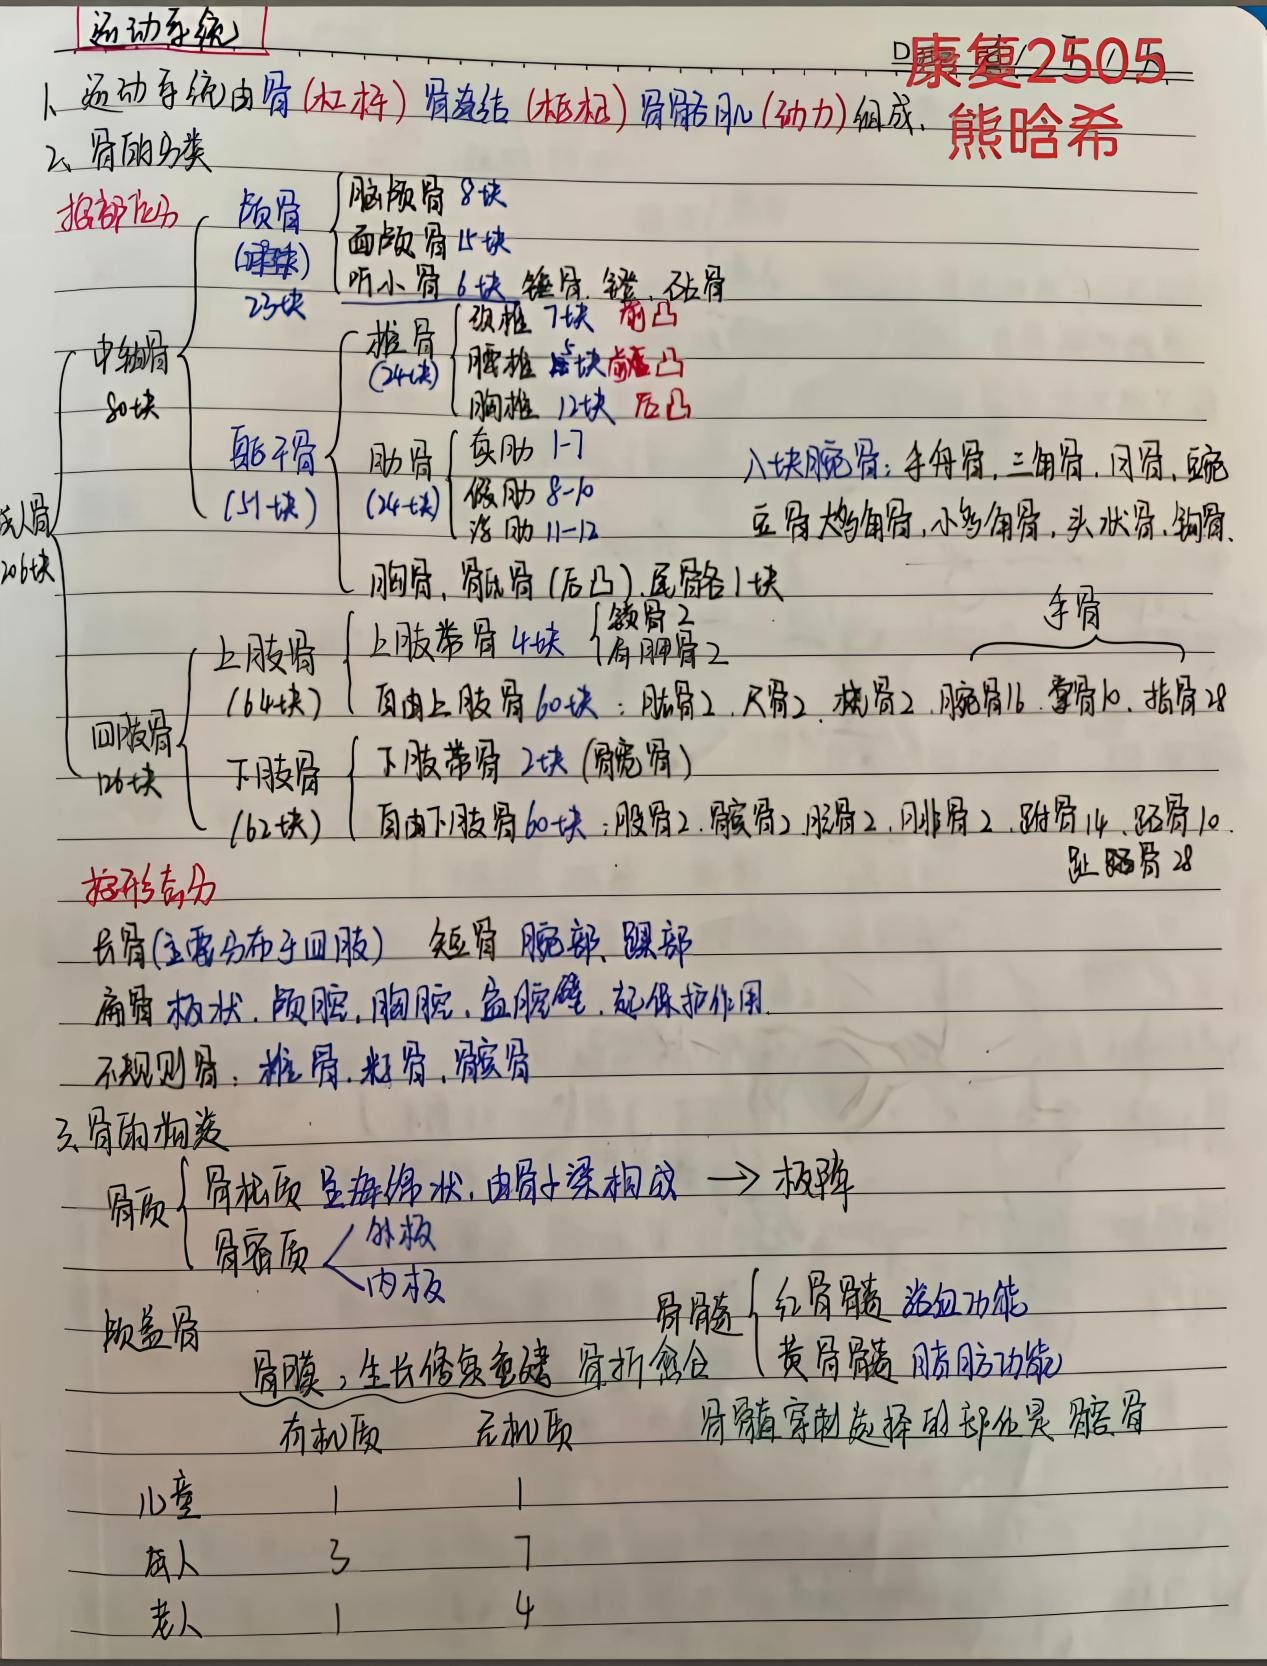 运动系统
康复2505
熊晗希
1、运动系统由骨(杠杆)骨连结(枢纽)骨骼肌(动力)组成、
2、骨的分类
按部位分
成人骨 206块
中轴骨 80块
颅骨
23块
脑颅骨 8块
面颅骨 15块
听小骨 6块 锤骨、镫、砧骨
躯干骨 (51块)
椎骨 (24块)
颈椎 7块 前凸
腰椎 5块 前凸
胸椎 12块 后凸
肋骨 (24块)
真肋 1-7
假肋 8-10
浮肋 11-12
胸骨、骶骨(后凸)、尾骨各1块
八块腕骨:手舟骨、三角骨、月骨、豌
豆骨 大多角骨、小多角骨、头状骨、钩骨、
四肢骨 126块
上肢骨 (64块)
上肢带骨 4块 锁骨2 肩胛骨2
手骨
自由上肢骨 60块:肱骨2、尺骨2、桡骨2、腕骨16、掌骨10、指骨28
下肢骨 (62块)
下肢带骨 2块(髋骨)
自由下肢骨 60块:股骨2、髌骨2、胫骨2、腓骨2、跗骨14、跖骨10、
趾骨28
按形态分
长骨(主要分布于四肢) 短骨 腕部、踝部
扁骨 板状、颅腔、胸腔、盆腔壁、起保护作用
不规则骨:椎骨、籽骨、髌骨
3、骨的构造
骨质
骨松质 呈海绵状、由骨小梁构成 → 板障
骨密质
外板
内板
颅盖骨
骨髓
红骨髓 造血功能
黄骨髓 脂肪功能
骨膜:生长修复重建 骨折愈合
骨髓穿刺选择的部位是 髂骨
有机质 无机质
儿童 1 1
成人 3 7
老人 1 4